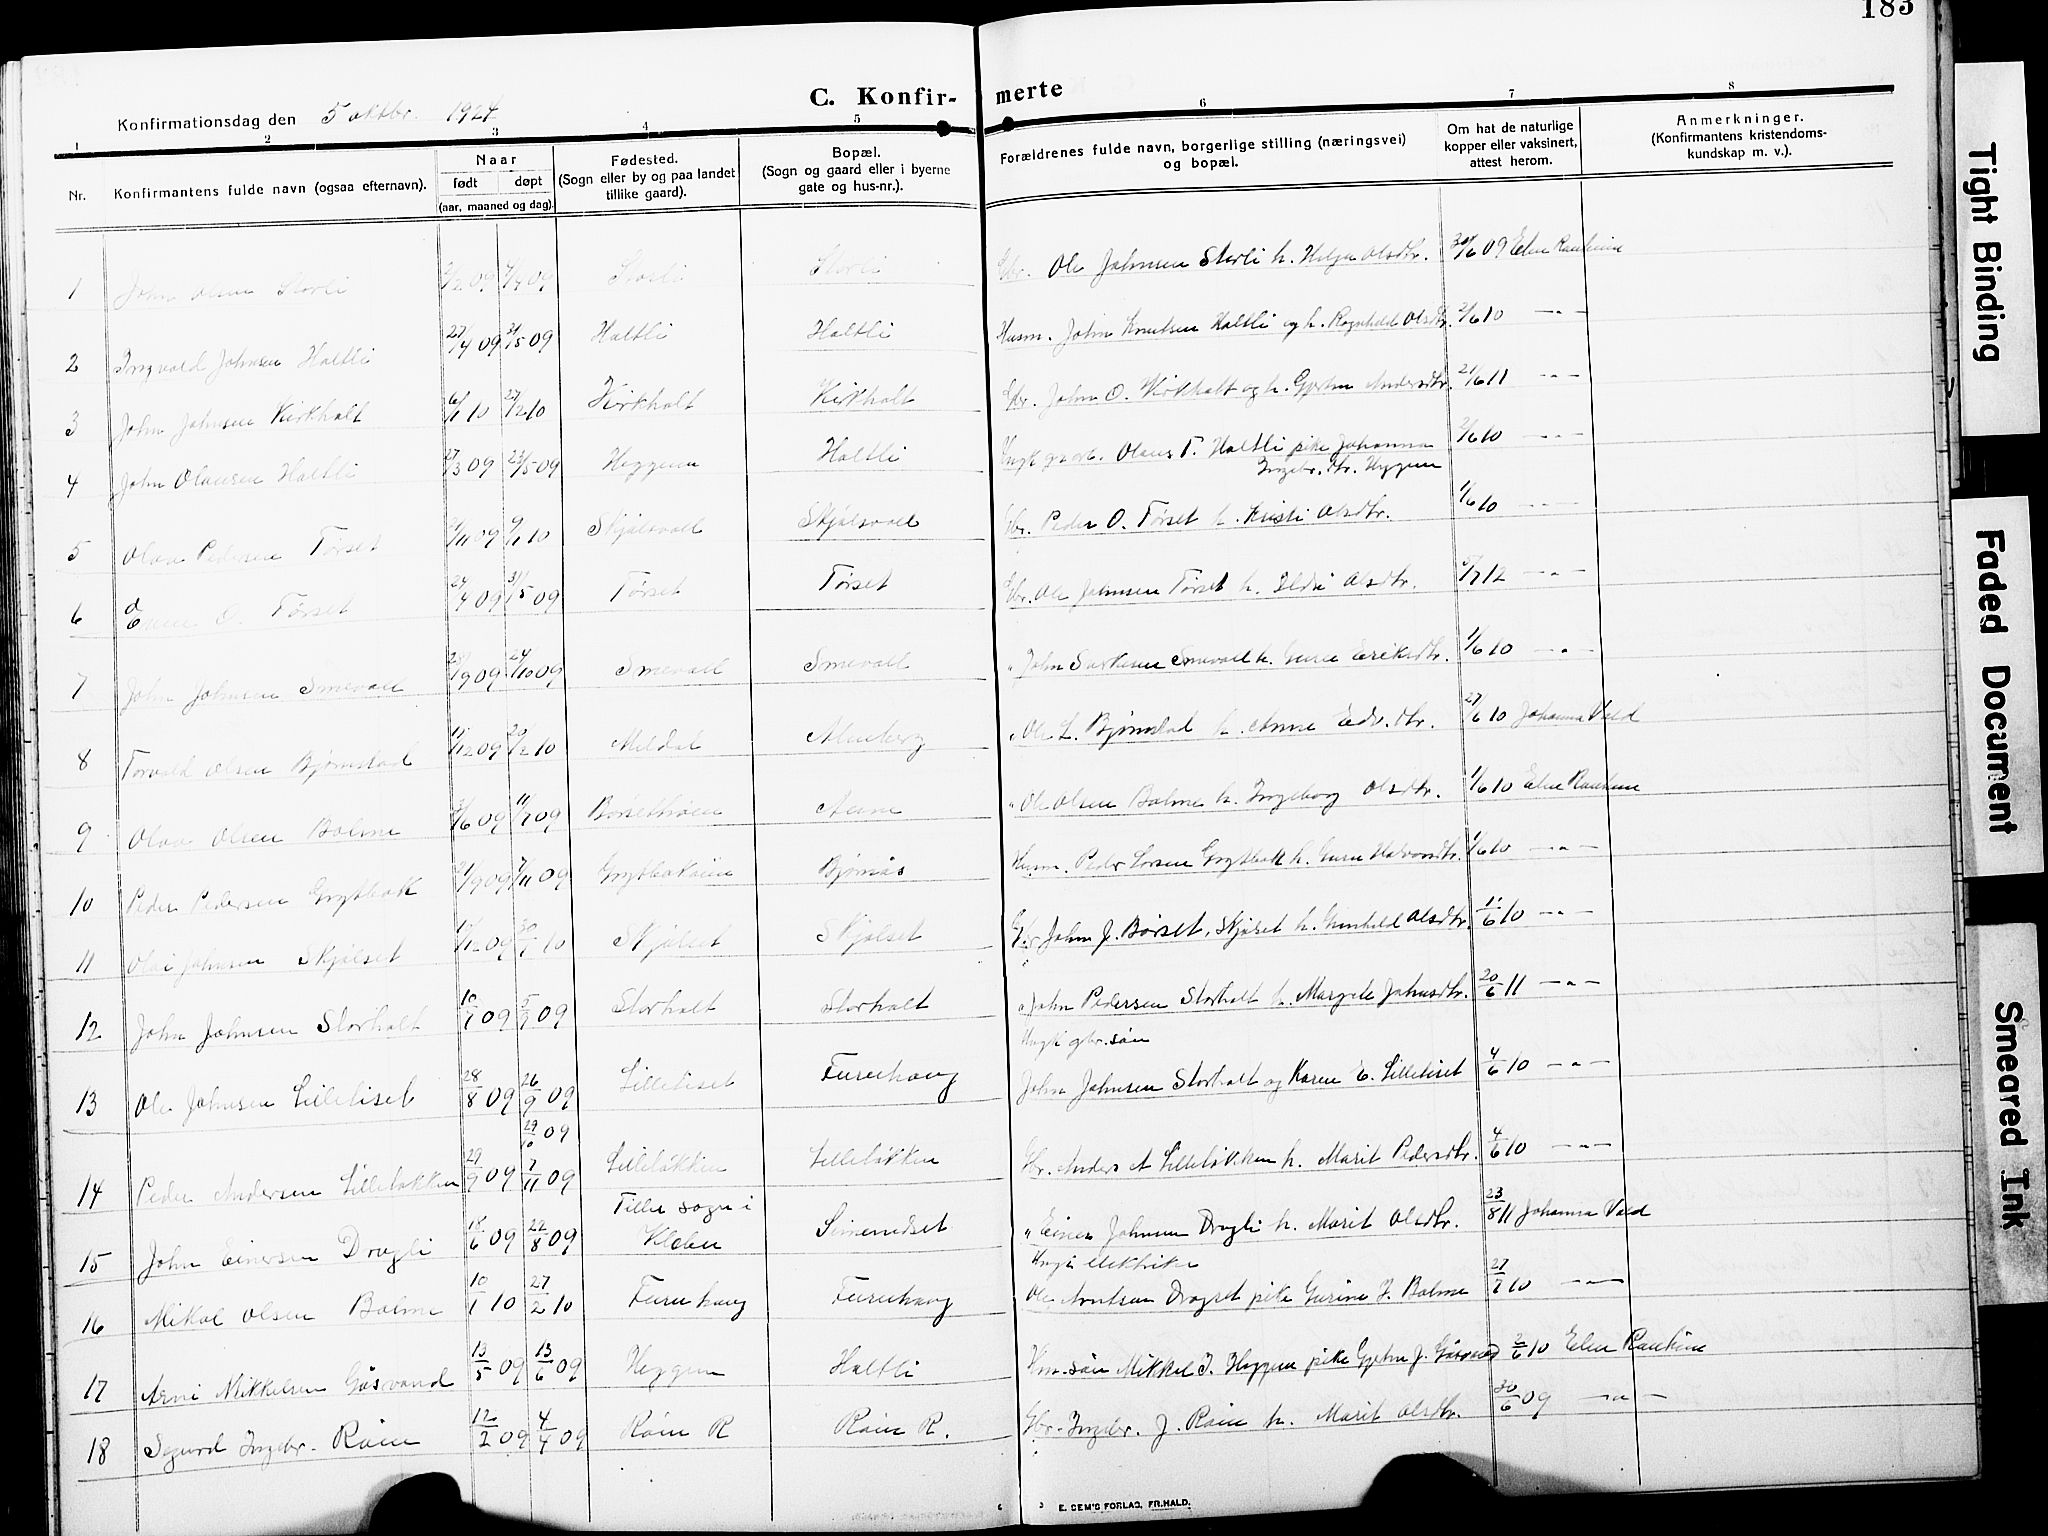 183
C. Konfir- merte
Konfirmationsdag den 5 oktbr. 1924
1 2 3 4 5 6 7 8
Nr. Konfirmantens fulde navn (ogsaa efternavn). Naar født døpt (aar, maaned og dag). Fødested. (Sogn eller by og paa landet tillike gaard). Bopæl. (Sogn og gaard eller i byerne gate og hus-nr.). Forældrenes fulde navn, borgerlige stilling (næringsvei) og bopæl. Om hat de naturlige kopper eller vaksinert, attest herom. Anmerkninger. (Konfirmantens kristendoms- kundskap m. v.).
1 John Olsen Storli Storli Storli Gbr. Ole Johnsen Storli h. Helga Olsdtr. 30/6 09
2 Ingvald Johnsen Holtli 27/4 09 31/5 09 Holtli Holtli Husm. John Knutsen Holtli og h. Ragnhild Olsdtr. 2/6 10 -"-
3 John Johnsen Kirkholt 6/1 10 27/2 10 Kirkholt Kirkholt Gbr. John O. Kirkholt og h. Gjertru Andersdtr. 21/6 11 -"-
4 John Olausen Holtli 27/3 09 23/5 09 Heggem Holtli Olaus T. Holtli pike Johanna Ingebr.dtr. Heggem 2/6 10 -"-
5 Olav Pedersen Tørset 9/1 10 Skjølsvoll Skjølsvoll Gbr. Peder O. Tørset h. Kristi Olsdtr. 1/6 10 -"-
6 O. Tørset 24/4 09 31/5 09 Tørset Tørset Gbr. Ole Johnsen Tørset h. Ildri Olsdtr. -"-
7 John Johnsen Smevoll 24/10 09 Smevoll Smevoll " John Smevoll h. Guru Eriksdtr. 1/6 10 -"-
8 Torvald Olsen Bjørnstad 20/2 10 Meldal Almberg " Ole L. Bjørnstad h. Anne Edv.dtr. 27/6 10 Johanna Vold
9 Olav Olsen Bolme 11/7 09 Aune " Ole Olsen Bolme h. Ingeborg Olsdtr. 1/6 10
10 Peder Pedersen Grytbak Bjørnås Husm. Peder Grytbak h. Guru Halvorsdtr. 1/6 10 -"-
11 Johnsen Skjølset Skjølset Skjølset Gbr John J. Børset, Skjølset h. Gunhild Olsdtr. 11/6 10 -"-
12 John Johnsen Storholt Storholt Storholt " John Pedersen Storholt h. Margrete Johnsdtr. 20/6 11 -"-
Ungk gbr. søn
13 Ole Johnsen Lilleliset 28/8 09 26/9 09 Lilleliset Furuhaug John Johnsen Storholt og Karen E. Lilleliset 4/6 10 -"-
29/10 09
14 Peder Andersen Lilleløkken 29/9 09 7/11 09 Lilleløkken Lilleløkken Gbr. Anders A Lilleløkken h. Marit Pedersdtr. 4/6 10 -"-
15 John Einersen Drogli 18/6 09 22/8 09 Tiller sogn i Klebu " Einer Johnsen Drogli h. Marit Olsdtr. 23/8 11 Johanna Vold
Ungk elektriker
16 Mikal Olsen Bolme 10/1 10 27/2 10 Furuhaug Furuhaug Ole Arntsen Drogset pike Gurine J. Bolme 27/7 10 -"-
17 Arni Mikkelsen Gåsvand 13/5 09 13/6 09 Heggem Holtli søn Mikkel J. Heggem pike Gjetru J. Gåsvand 2/6 10
18 Sigurd Ingebr. Røen 12/2 09 4/4 09 Røen R Røen R. Gbr. Ingebr. J. Røen h. Marit Olsdtr. 30/6 09 -"-
E. SEM'S FORLAG, FR.HALD.
Tight Binding
Faded Document
Smeared Ink